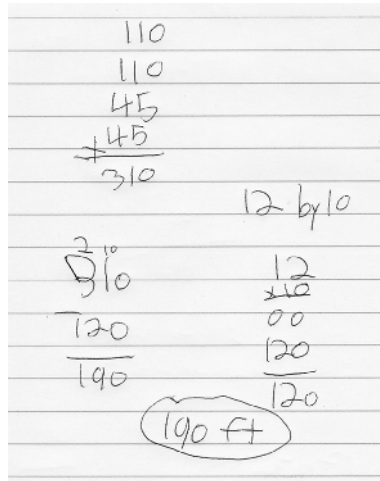 110
110
45
+45
310
12 by 10
2 10
310
-120
190
12
x10
00
120
120
190 ft